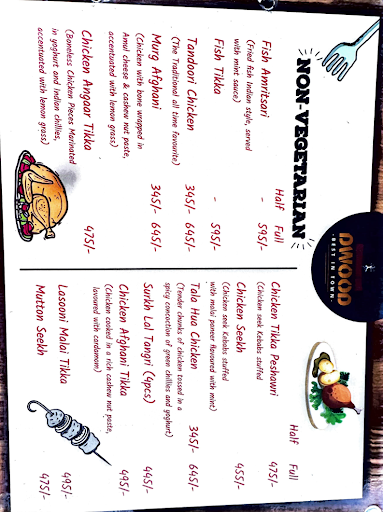 NON-VEGETARIAN
Half Full
Fish Amritsari - 595/-
(Fried fish Indian style, served
with mint sauce)
Fish Tikka - 595/-
Tandoori Chicken 345/- 645/-
(The Traditional all time favourite)
Murg Afghani 345/- 645/-
(Chicken with bone wrapped in
Amul cheese & cashew nut paste,
accentuated with lemon grass)
Chicken Angaar Tikka 475/-
(Boneless Chicken Pieces Marinated
in yoghurt and Indian chillies,
accentuated with lemon grass)
DWOOD
- BEST IN TOWN -
Half Full
Chicken Tikka Peshawri 475/-
(Chicken seek Kebabs stuffed
with malai paneer flavoured with mint)
Chicken Seekh 455/-
(Chicken seek Kebabs stuffed
Tala Hua Chicken 345/- 645/-
(Tender chunks of chicken tossed in a
spicy concoction of green chillies and yoghurt)
Surkh Lal Tangri (4pcs) 445/-
Chicken Afghani Tikka 495/-
(Chicken cooked in a rich cashew nut paste,
lavoured with cardamom)
Lasooni Malai Tikka 495/-
Mutton Seekh 475/-